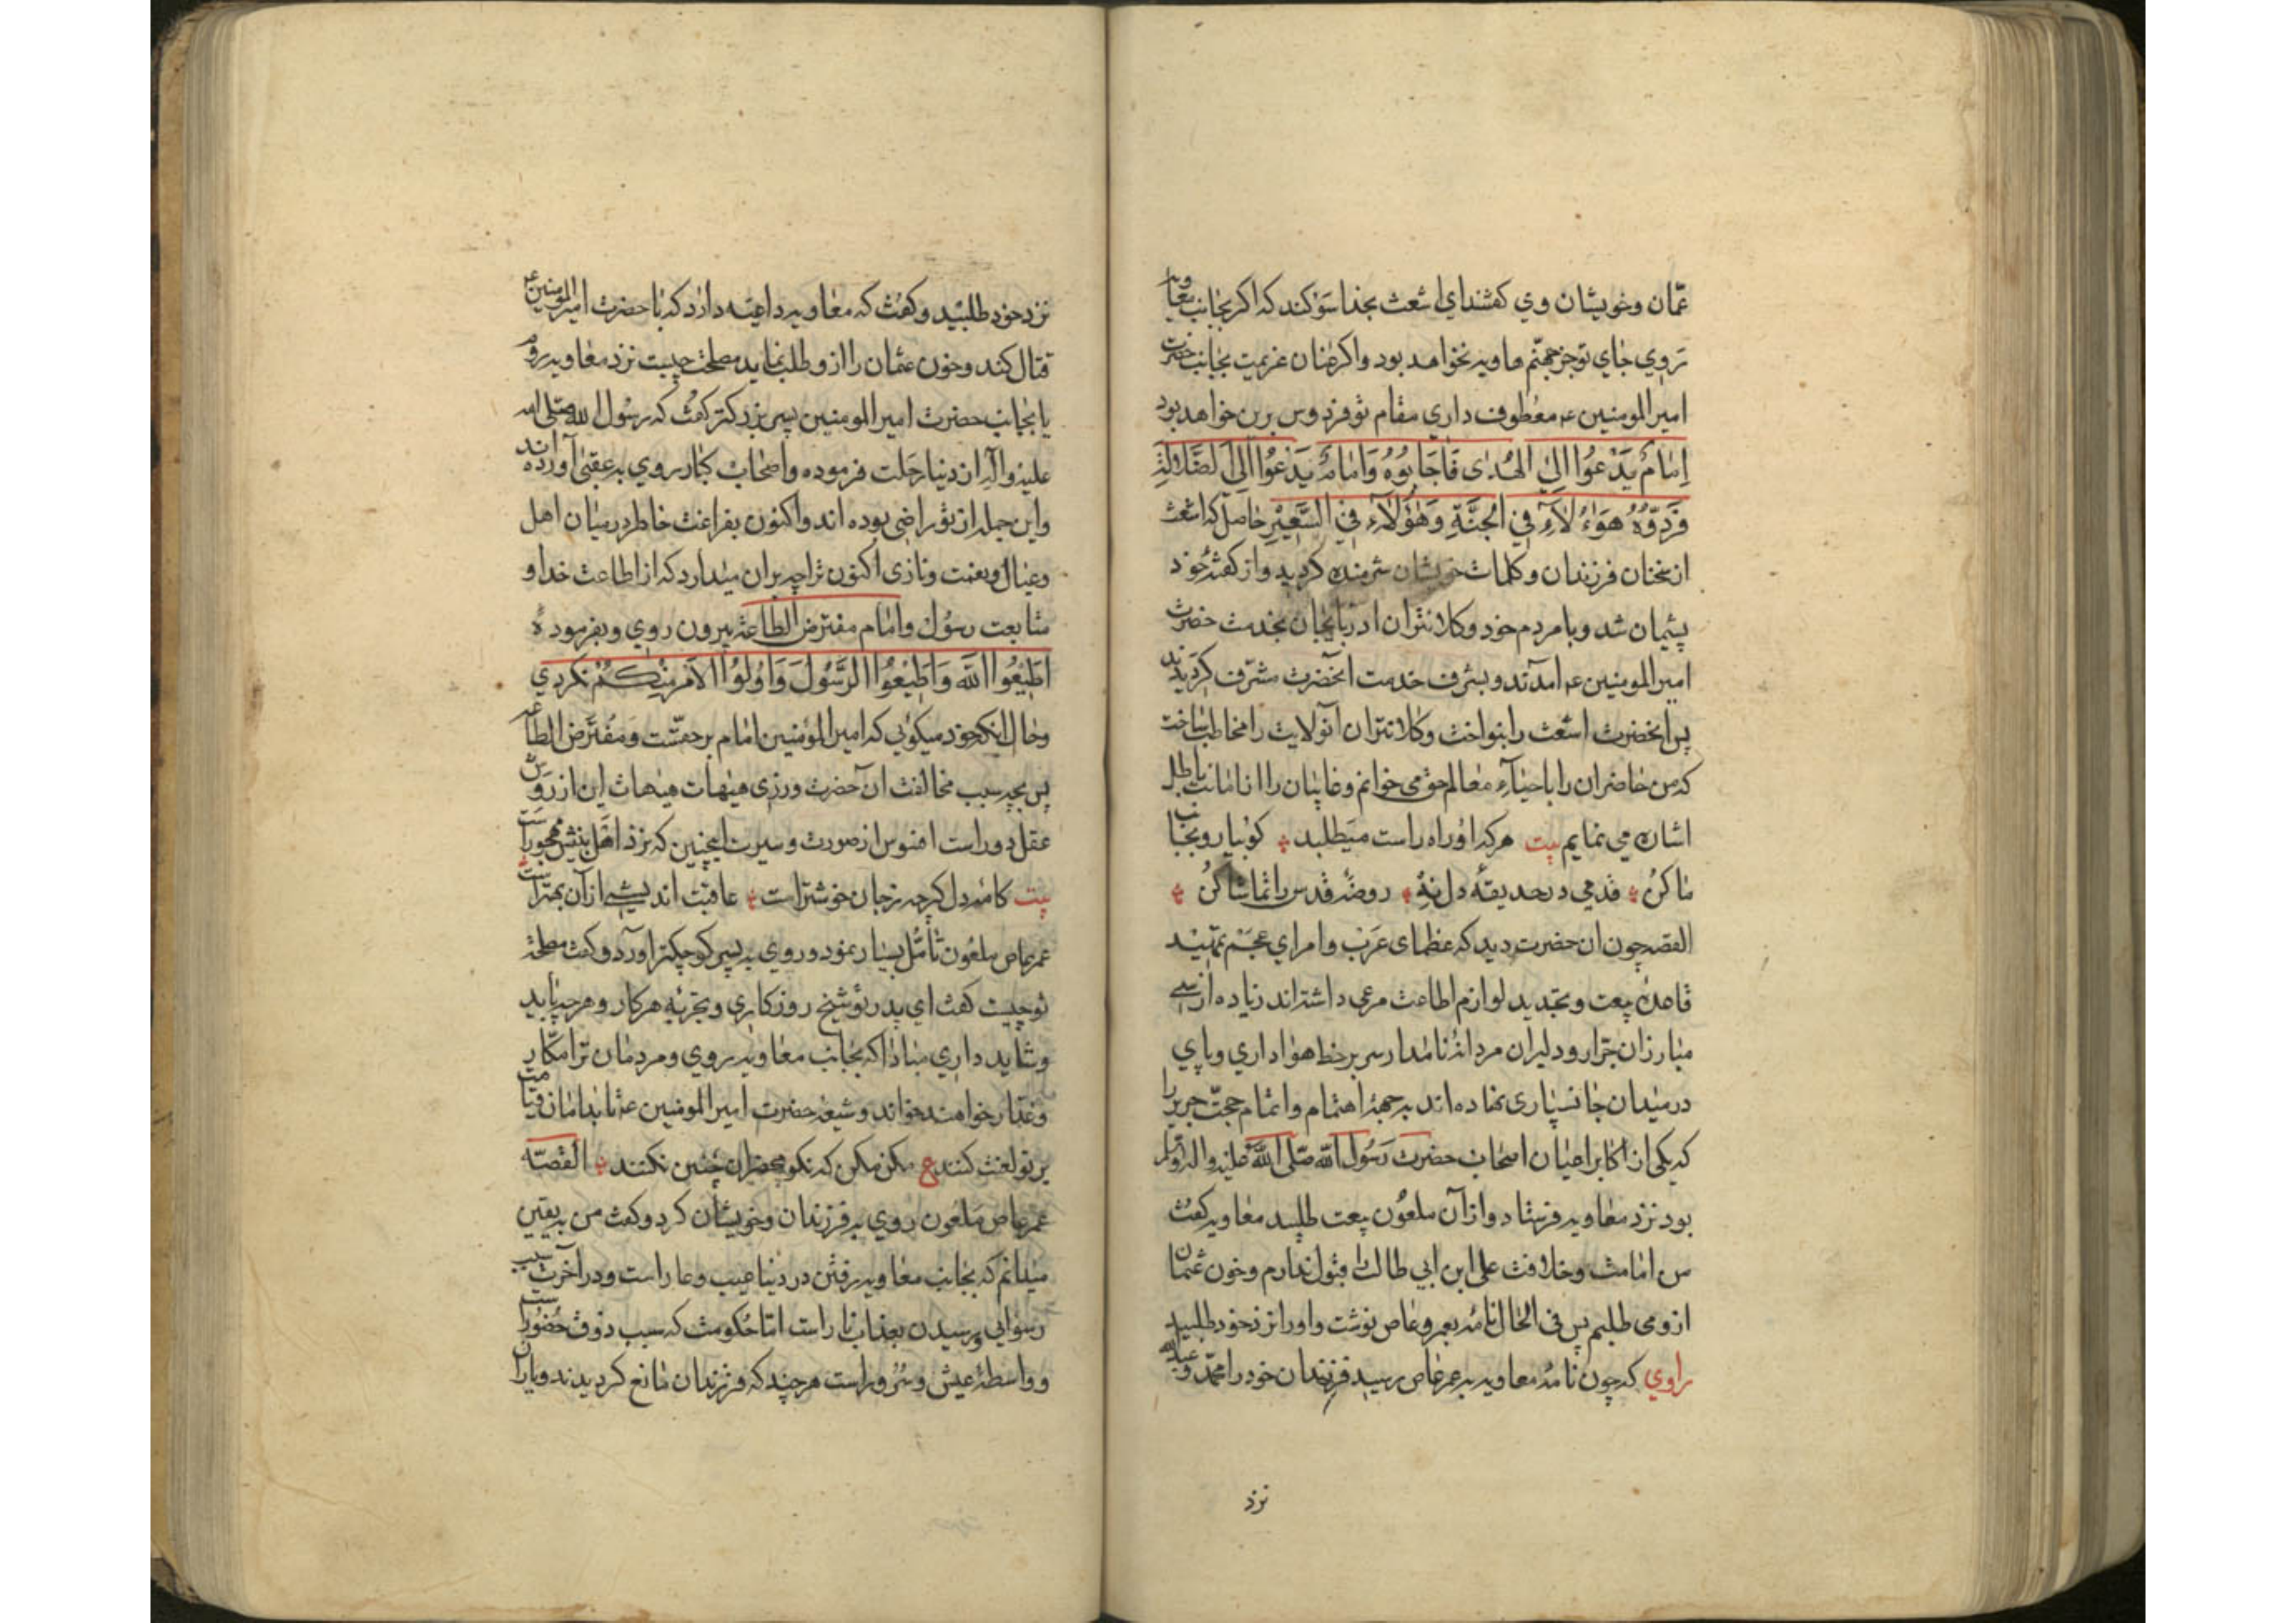 عمّان وخویشان وی کفتند ای اشعث بخدا سوکند که اکر بجانب معاویه
روی جای تو جز جهنّم هاویه نخواهد بود واکر عنان عزیمت بجانب حضرت
امیرالمومنین عم معطوف داری مقام تو فردوس برین خواهد بود
اِمَامٌ یَدْعُوا اِلَی الهُدٰی فَاَجَابُوُهُ وَاِمَامٌ یَدْعُوا اِلَی الضَّلَالَةِ
هٰؤُلَآءِ فِی الجَنَّةِ وَهٰؤُلَآءِ فِی السَّعِیْرِ حاصل که اشعث
از سخنان فرزندان وکلمات خویشان شرمنده کردید واز کفتۀ خود
پشیمان شد وبا مردم خود وکلانتران ادربایجان بخدمت حضرت
امیرالمومنین عم آمدند وبشرف خدمت انحضرت مشرّف کردیدند
پس انحضرت اشعث را بنواخت وکلانتران آنولایت را مخاطب ساخت
که من حاضران را باحیآء معالم حق می خوانم وغایبان را باطل
اشان می نمایم بیت هرکه او راه راست میطلبد کو بیا رو بجناب
ما کن قدمی در حدیقۀ دل نه روضۀ قدس را تماشا کن
القصه چون ان حضرت دید که عظمای عرب وامرای عجم تمهید
قاعدۀ بیعت وتجدید لوازم اطاعت مرعی داشته‌اند زیاده از سی
مبارزان جرّار ودلیران مردانۀ نامدار سر بر خط هواداری وپای
در میدان جانسپاری نهاده‌اند به جهة اهتمام واتمام حجت جریر را
که یکی از اکابر اعیان اصحاب حضرت رَسُول الله صَلّی اللّه علیه واله وسلم
بود نزد معاویه فرستاد واز آن ملعون بیعت طلبید معاویه کفت
من امامت وخلافت علی ابن ابی طالب را قبول ندارم وخون عثمان
ازو می طلبم پس فی الحال نامۀ بعمرو عاص نوشت واورا نزد خود طلبید
راوی که چون نامۀ معاویه به عمرعاص رسید فرزندان خود را محمّد وعبدالله
نزد
نزد خود طلبید وکفت که معاویه داعیه دارد که با حضرت امیرالمومنین ع
قتال کند وخون عثمان را ازو طلب نماید مصلحت چیست نزد معاویه روم
یا بجانب حضرت امیرالمومنین پسر بزرکتر کفت که رسول الله صلی الله
علیه وآله از دنیا رحلت فرموده واصحاب کبار روی به عقبی آورده‌اند
واین جمله از تو راضی بوده اند واکنون بفراغت خاطر در میان اهل
وعیال وبنعمت ونازی اکنون ترا چه بران میدارد که از اطاعت خدا و
متابعت رسول وامام مفترض الطاعة بیرون روی وبفرموده
اَطِیْعُوا اللّٰهَ وَاَطِیْعُوا الرَّسُولَ وَاُولُوا الاَمْرِ مِنْكُمْ نکردی
وحال انکه خود میکویی که امیرالمومنین امام برحقست ومفترض الطاعه
پس بچه سبب مخالفت ان حضرت ورزی هیهات هیهات این از روش
عقل دور است افسوس از صورت وسیرت اینچنین که نزد اهل بینش مهجور است
بیت کامه دل کرچه زجان خوشتر است عاقبت اندیشی از آن بهتر است
عمرعاص ملعون تأمّل بسیار نمود وروی به پسر کوچکتر اورد وکفت مصلحة
تو چیست کفت ای پدر تو شیخ روزکاری وتجربۀ هر کار وهرچه باید
وشاید داری مبادا که بجانب معاویه روی ومردمان ترا مکّار
وغدّار خواهند خواند وشیعۀ حضرت امیرالمومنین عم تا بدامان قیامت
بر تو لعنت کنند ع مکن مکن که نکو محضران چنین نکنند القصّه
عمرعاص ملعون روی به فرزندان وخویشان کرد وکفت من به یقین
میدانم که بجانب معاویه رفتن در دنیا عیب وعار است ودر آخرت سبب
رسوایی ورسیدن بعذاب نار است امّا حکومت که سبب ذوق حضور است
وواسطۀ عیش وسرور است هرچند که فرزندان مانع کردیدند ویاران